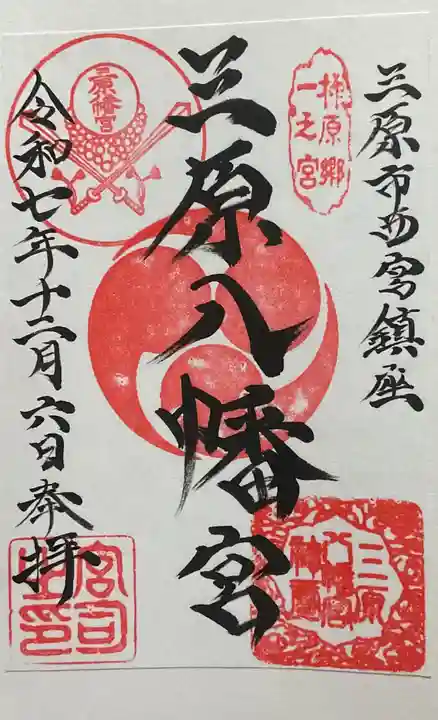 三原市西宮鎮座
柞原郷
一之宮
三原八幡宮
三原八幡宮
令和七年十二月六日奉拝
三原
八幡宮
神璽
宮司
之印